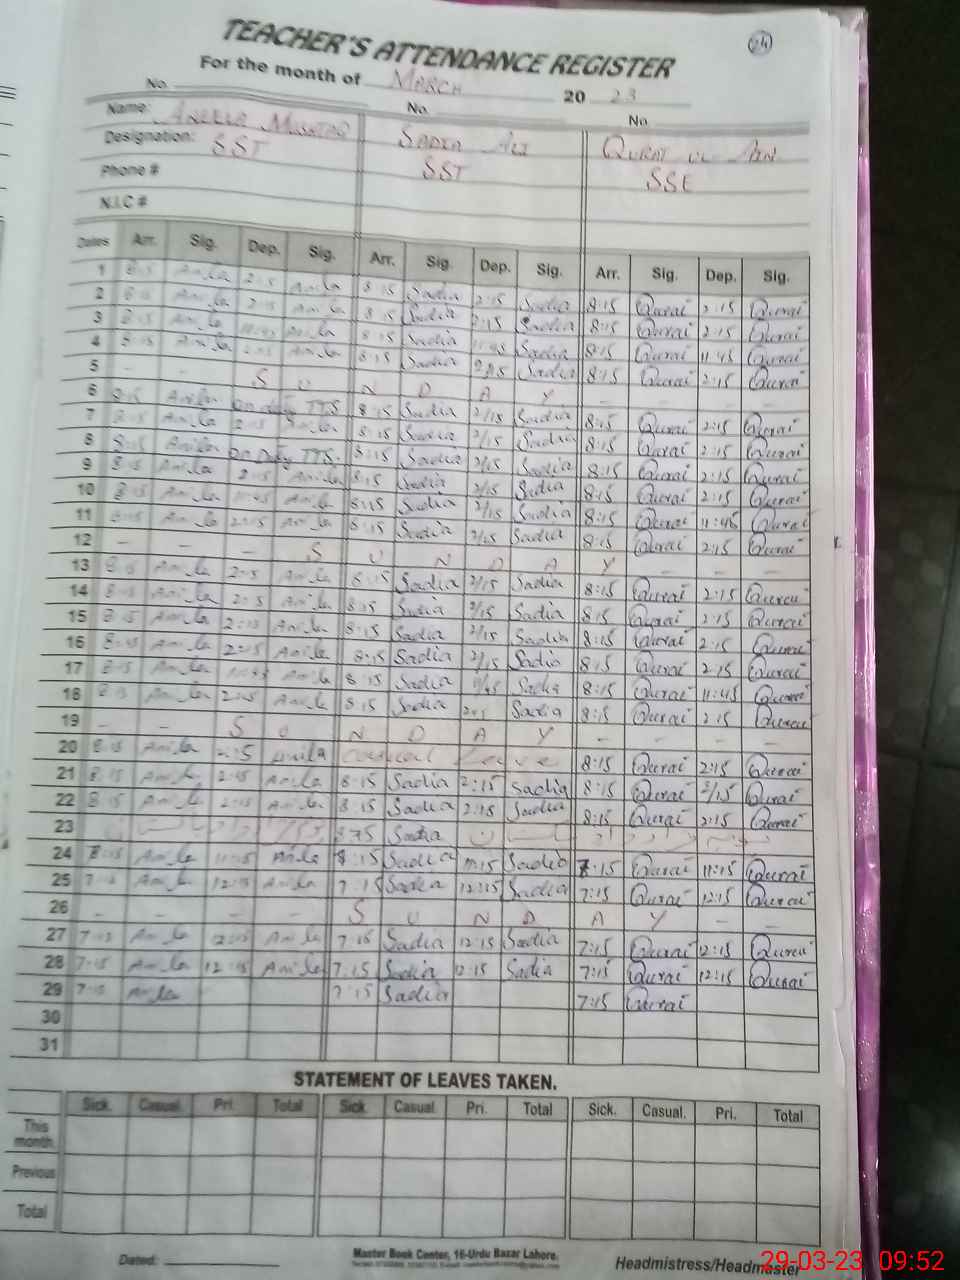 24
TEACHER'S ATTENDANCE REGISTER
For the month of MARCH 20 23
No. No. No.
Name: MUSHTAQ SADIA ALI QURAT UL AIN
Designation: SST SST SSE
Phone #
N.I.C #
Dates Arr. Sig. Dep. Sig. Arr. Sig. Dep. Sig. Arr. Sig. Dep. Sig.
1 8:15 Anila 2:15 Anila 8:15 Sadia 2:15 Sadia 8:15 Qurat 2:15 Qurat
2 8:15 Anila 2:15 Anila 8:15 Sadia 2:15 Sadia 8:15 Qurat 2:15 Qurat
3 8:15 Anila 11:45 Anila 8:15 Sadia 11:45 Sadia 8:15 Qurat 11:45 Qurat
4 8:15 Anila 2:15 Anila 8:15 Sadia 2:15 Sadia 8:15 Qurat 2:15 Qurat
5 - - S U N D A Y - - -
6 8:15 Anila On duty TTS 8:15 Sadia 2/15 Sadia 8:15 Qurat 2:15 Qurat
7 8:15 Anila 2:15 Anila 8:15 Sadia 2/15 Sadia 8:15 Qurat 2:15 Qurat
8 8:15 Anila On Duty TTS. 8:15 Sadia 2/15 Sadia 8:15 Qurat 2:15 Qurat
9 8:15 Anila 2:15 Anila 8:15 Sadia 2/15 Sadia 8:15 Qurat 2:15 Qurat
10 8:15 Anila 11:45 Anila 8:15 Sadia 2/15 Sadia 8:15 Qurat 11:45 Qurat
11 8:15 Anila 2:15 Anila 8:15 Sadia 2/15 Sadia 8:15 Qurat 2:15 Qurat
12 - - - S U N D A Y - - -
13 8:15 Anila 2:15 Anila 8:15 Sadia 2/15 Sadia 8:15 Qurat 2:15 Qurat
14 8:15 Anila 2:15 Anila 8:15 Sadia 2/15 Sadia 8:15 Qurat 2:15 Qurat
15 8:15 Anila 2:15 Anila 8:15 Sadia 2/15 Sadia 8:15 Qurat 2:15 Qurat
16 8:15 Anila 2:15 Anila 8:15 Sadia 2/15 Sadia 8:15 Qurat 2:15 Qurat
17 8:15 Anila 11:45 Anila 8:15 Sadia 11/45 Sadia 8:15 Qurat 11:45 Qurat
18 8:15 Anila 2:15 Anila 8:15 Sadia 2:15 Sadia 8:15 Qurat 2:15 Qurat
19 - - S U N D A Y - - - -
20 8:15 Anila 2:15 Anila Casual Leave 8:15 Qurat 2:15 Qurat
21 8:15 Anila 2:15 Anila 8:15 Sadia 2:15 Sadia 8:15 Qurat 2/15 Qurat
22 8:15 Anila 2:15 Anila 8:15 Sadia 2:15 Sadia 8:15 Qurat 2:15 Qurat
23 Sadia
24 8:15 Anila 11:15 Anila 8:15 Sadia 11:15 Sadia :15 Qurat 11:15 Qurat
25 7:15 Anila 12:15 Anila 7:15 Sadia 12:15 Sadia 7:15 Qurat 12:15 Qurat
26 - - - - S U N D A Y - -
27 7:15 Anila 12:15 Anila 7:15 Sadia 12:15 Sadia 7:15 Qurat 12:15 Qurat
28 7:15 Anila 12:15 Anila 7:15 Sadia 12:15 Sadia 7:15 Qurat 12:15 Qurat
29 7:15 Anila 7:15 Sadia 7:15 Qurat
30
31
STATEMENT OF LEAVES TAKEN.
Sick. Casual. Pri. Total Sick. Casual. Pri. Total Sick. Casual. Pri. Total
This month
Previous
Total
Dated: Master Book Center, 16-Urdu Bazar Lahore. Headmistress/Headmaster
29-03-23 09:52